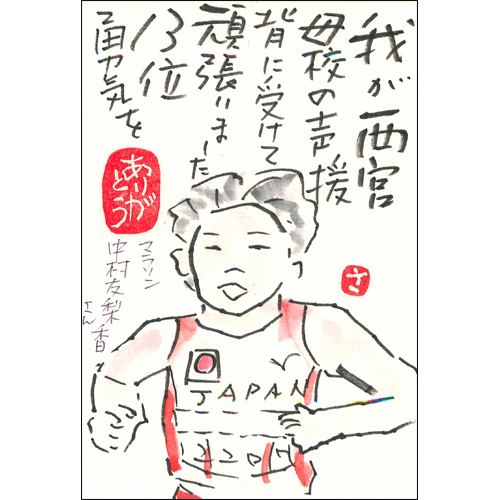 我が西宮
母校の声援
背に受けて
頑張いました
13位
勇気を
ありが
とう
マラソン
中村友梨香
さん
さ
JAPAN
2207